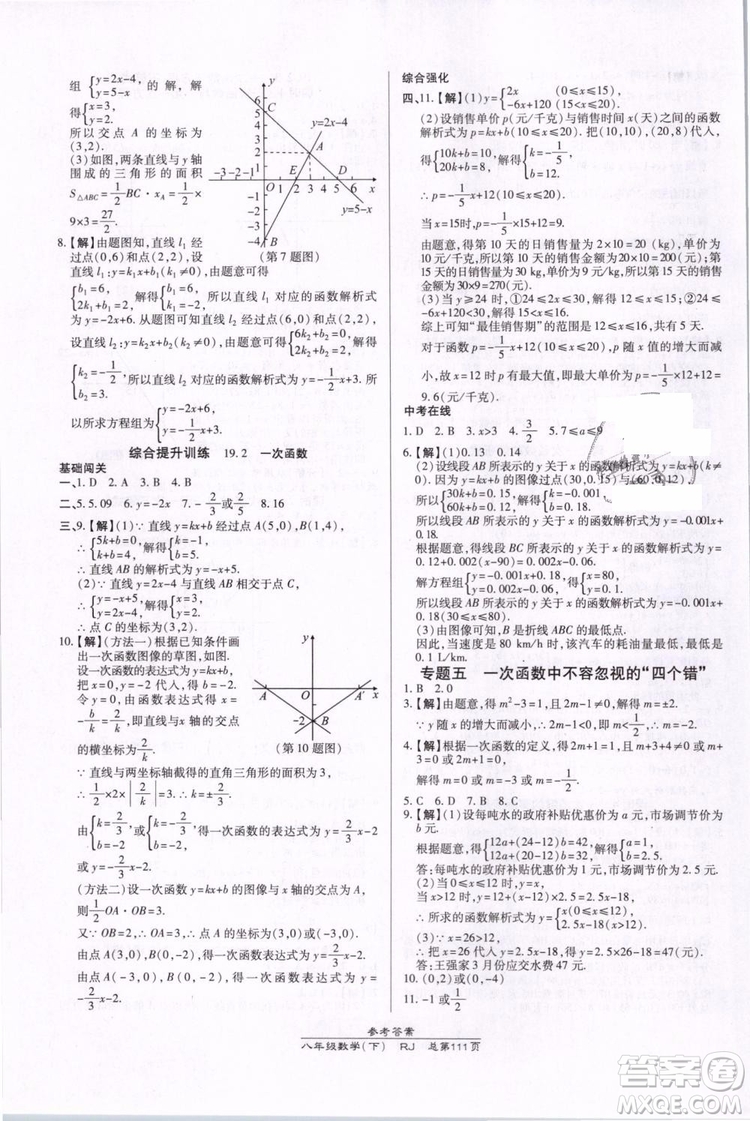 组 {y=2x-4, y=5-x 的解,解得
{x=3, y=2.
所以交点 A 的坐标为
(3,2).
(3)如图,两条直线与 y 轴
围成的三角形的面积
S△ABC=1/2 BC·xA=1/2×
9×3=27/2.
y
6
5
C
4
3
2
1
y=2x-4
A
-3 -2 -1
O
1 2 3 4 5 6
E
D
x
-1
-2
-3
-4
B
y=5-x
(第 7 题图)
8.【解】由题图知,直线 l₁ 经
过点(0,6)和点(2,2),设
直线 l₁:y=k₁x+b₁(k₁≠0),可得
{b₁=6, 2k₁+b₁=2, 解得{k₁=-2, b₁=6. 所以直线 l₁ 对应的函数解析式
为 y=-2x+6. 从题图可知直线 l₂ 经过点(6,0)和点(2,2),
设直线 l₂:y=k₂x+b₂(k₂≠0),可得{6k₂+b₂=0, 2k₂+b₂=2, 解得
{k₂=-1/2, b₂=3. 所以直线 l₂ 对应的函数解析式为 y=-1/2x+3,
所以所求方程组为{y=-2x+6, y=-1/2x+3.
综合提升训练 19.2 一次函数
基础闯关
一、1. D 2. A 3. B 4. B
二、5. 5.09 6. y=-2x 7. -5/2或5/2 8. 16
三、9.【解】(1)∵ 直线 y=kx+b 经过点 A(5,0),B(1,4),
∴ {5k+b=0, k+b=4, 解得{k=-1, b=5.
∴ 直线 AB 的解析式为 y=-x+5.
(2)∵ 直线 y=2x-4 与直线 AB 相交于点 C,
∴ {y=-x+5, y=2x-4, 解得{x=3, y=2.
∴ 点 C 的坐标为(3,2).
10.【解】(方法一)根据已知条件画
出一次函数图像的草图,如图.
易得一次函数的表达式中 b=-2.
令 y=0,则 0=kx+b,解得 x=
-b/k=2/k,所以直线与 x 轴的交点
的横坐标为2/k.
A
A
-2
B
(第 10 题图)
∵ 直线与两坐标轴截得的直角三角形的面积为 3,
∴ 1/2×2×|2/k|=3,解得 k=±2/3.
∴ {k=2/3, b=-2,或{k=-2/3, b=-2,得一次函数的表达式为 y=2/3x-2
或 y=-2/3x-2.
(方法二)设一次函数 y=kx+b 的图像与 x 轴的交点为 A,
则1/2OA·OB=3.
又∵ OB=2,∴ OA=3. ∴ A(3,0)或(-3,0).
由点 A(3,0),B(0,-2),得一次函数表达式为 y=2/3x-2.
由点 A(-3,0),B(0,-2),得一次函数表达式为 y=
-2/3x-2.
综合强化
四、11.【解】(1)y={2x (0≤x≤15), -6x+120 (15<x≤20).
(2)设销售单价 p(元/千克)与销售时间 x(天)之间的函数
解析式为 p=kx+b(10≤x≤20). 把(10,10),(20,8)代入,
得{10k+b=10, 20k+b=8, 解得{k=-1/5, b=12.
∴ p=-1/5x+12(10≤x≤20).
当 x=15时,p=-1/5×15+12=9.
由题意,得第 10 天的日销售量为 20 (kg),单价为 10
元/千克,所以第 10 天的销售金额为 20×10=200(元);第
15 天的日销售量为 30 kg,单价为 9 元,所以第 15 天的销售
金额为30×9=270(元).
(3)当 y≥24 时,①24≤2x,得 12≤x≤15;②24≤
-6x+120,得 15<x≤16.
综上可知“最佳销售期”的范围是 12≤x≤16.
对于函数 p=-1/5x+12(10≤x≤20),p 随 x 值的增大而减
小,故当 x=12时,p有最大值,即最大单价为-1/5×12+12=
9.6(元/千克).
中考在线
1. A 2. B 3. x>3 4. 3/2 5. 7≤a≤9
6.【解】(1)0.13 0.14
(2)设线段 AB 所表示的 y 与 x 之间的函数解析式为 y=kx+b.
因为 y=kx+b 的图像过点(30,0.15)与(60,0.12),
所以{30k+b=0.15, 60k+b=0.12, 解得{k=-0.001, b=0.18.
所以线段 AB 所表示的 y 关于 x 的函数解析式为 y=-0.001x+
0.18.
根据题意,得线段 BC 所表示的 y 与 x 之间的函数解析式为 y=
0.12+0.002(x-90)=0.002x-0.06.
解方程组{y=-0.001x+0.18, y=0.002x-0.06, 得{x=80, y=0.1.
所以线段 AB 所表示的 y 关于 x 的函数解析式为 y=-0.001x+
0.18.
(3)由题图可知,B 是折线 ABC 的最低点.
因此,当速度是 80 km/h 时,该汽车的耗油量最低,最低是
0.1 L/km.
专题五 一次函数中不容忽视的“四个错”
1. B 2. 0
3.【解】由题意,得 m²-3=1,解得 m=±2.
∵ y 随 x 的增大而减小,∴ m+1<0. ∴ m=-2.
4.【解】根据一次函数的定义,得 2m+1≠0,且 2m²+1/2=1,
解得 m=±1/2. 又∵ 2m+1≠0,∴ m≠-1/2. ∴ m=1/2.
5. C 6. D 7. B 8. C
9.【解】(1)设每吨水的政府补贴优惠价为 a 元,市场调节价为
b 元.
根据题意,得{12a+(24-12)b=42, 12a+(20-12)b=32, 解得{a=1, b=2.5.
答:每吨水的政府补贴优惠价为1元,市场调节价为2.5元.
(2)当 0≤x≤12时,y=x;
当 x>12时,y=12+(x-12)×2.5=2.5x-18,
∴ 所求的函数关系式为 y={x(0≤x≤12), 2.5x-18(x>12).
(3)∵ x=26>12,
∴ 把 x=26代入 y=2.5x-18,得 y=2.5×26-18=47(元).
答:王强家 3 月份应交水费 47 元.
10. (0,2)或(0,-4)
11. -1 或1/2
参考答案
八年级数学(下) RJ 总第111页
答案圈
MXQE.COM